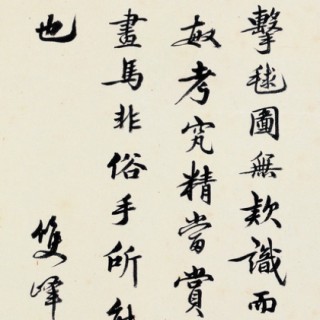 擊毬圖無款識而
考究精當賞
畫馬非俗手所能
也
雙峰